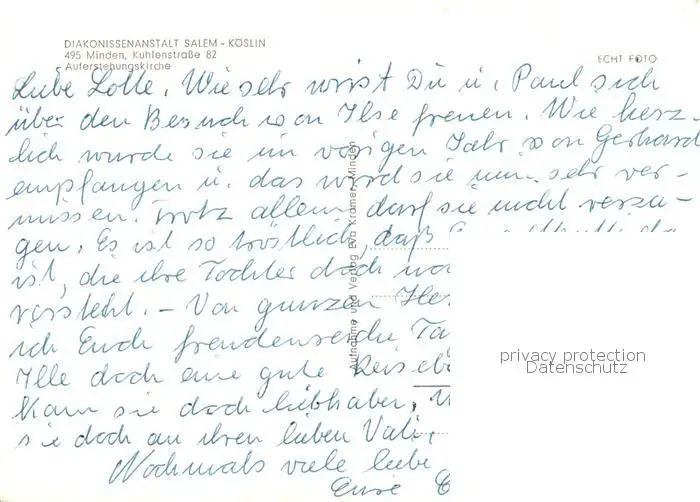 DIAKONISSENANSTALT SALEM - KÖSLIN
495 Minden, Kuhlenstraße 82
Auferstehungskirche
ECHT FOTO
Liebe Lotte, Wie sehr wirst Du u. Paul sich
über den Besuch von Ilse freuen. Wie herz-
lich wurde sie im vorigen Jahr von Gerhard
empfangen u. das wird sie nun sehr ver-
missen. Trotz allem darf sie nicht verza-
gen. Es ist so tröstlich, daß
ist, die ihre Tochter doch
versteht. – Von ganzen
ich Euch freudenreiche
Ilse doch eine gute
Kann sie doch liebhaben,
sie doch an ihren lieben Vati,
Nochmals viele liebe
Eure
Aufnahme und Verlag Eva Kramer, Minden
privacy protection
Datenschutz